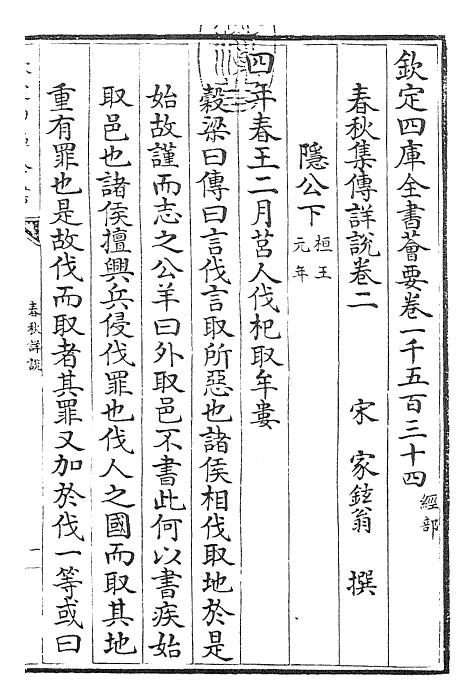 欽定四庫全書薈要卷一千五百三十四 經部
春秋集傳詳說卷二
宋 家鉉翁 撰
隱公下 桓王元年
四年春王二月莒人伐杞取牟婁
穀梁曰傳曰言伐言取所惡也諸侯相伐取地於是
始故謹而志之公羊曰外取邑不書此何以書疾始
取邑也諸侯擅興兵侵伐罪也伐人之國而取其地
重有罪也是故伐而取者其罪又加於伐一等或曰
春秋詳說
一